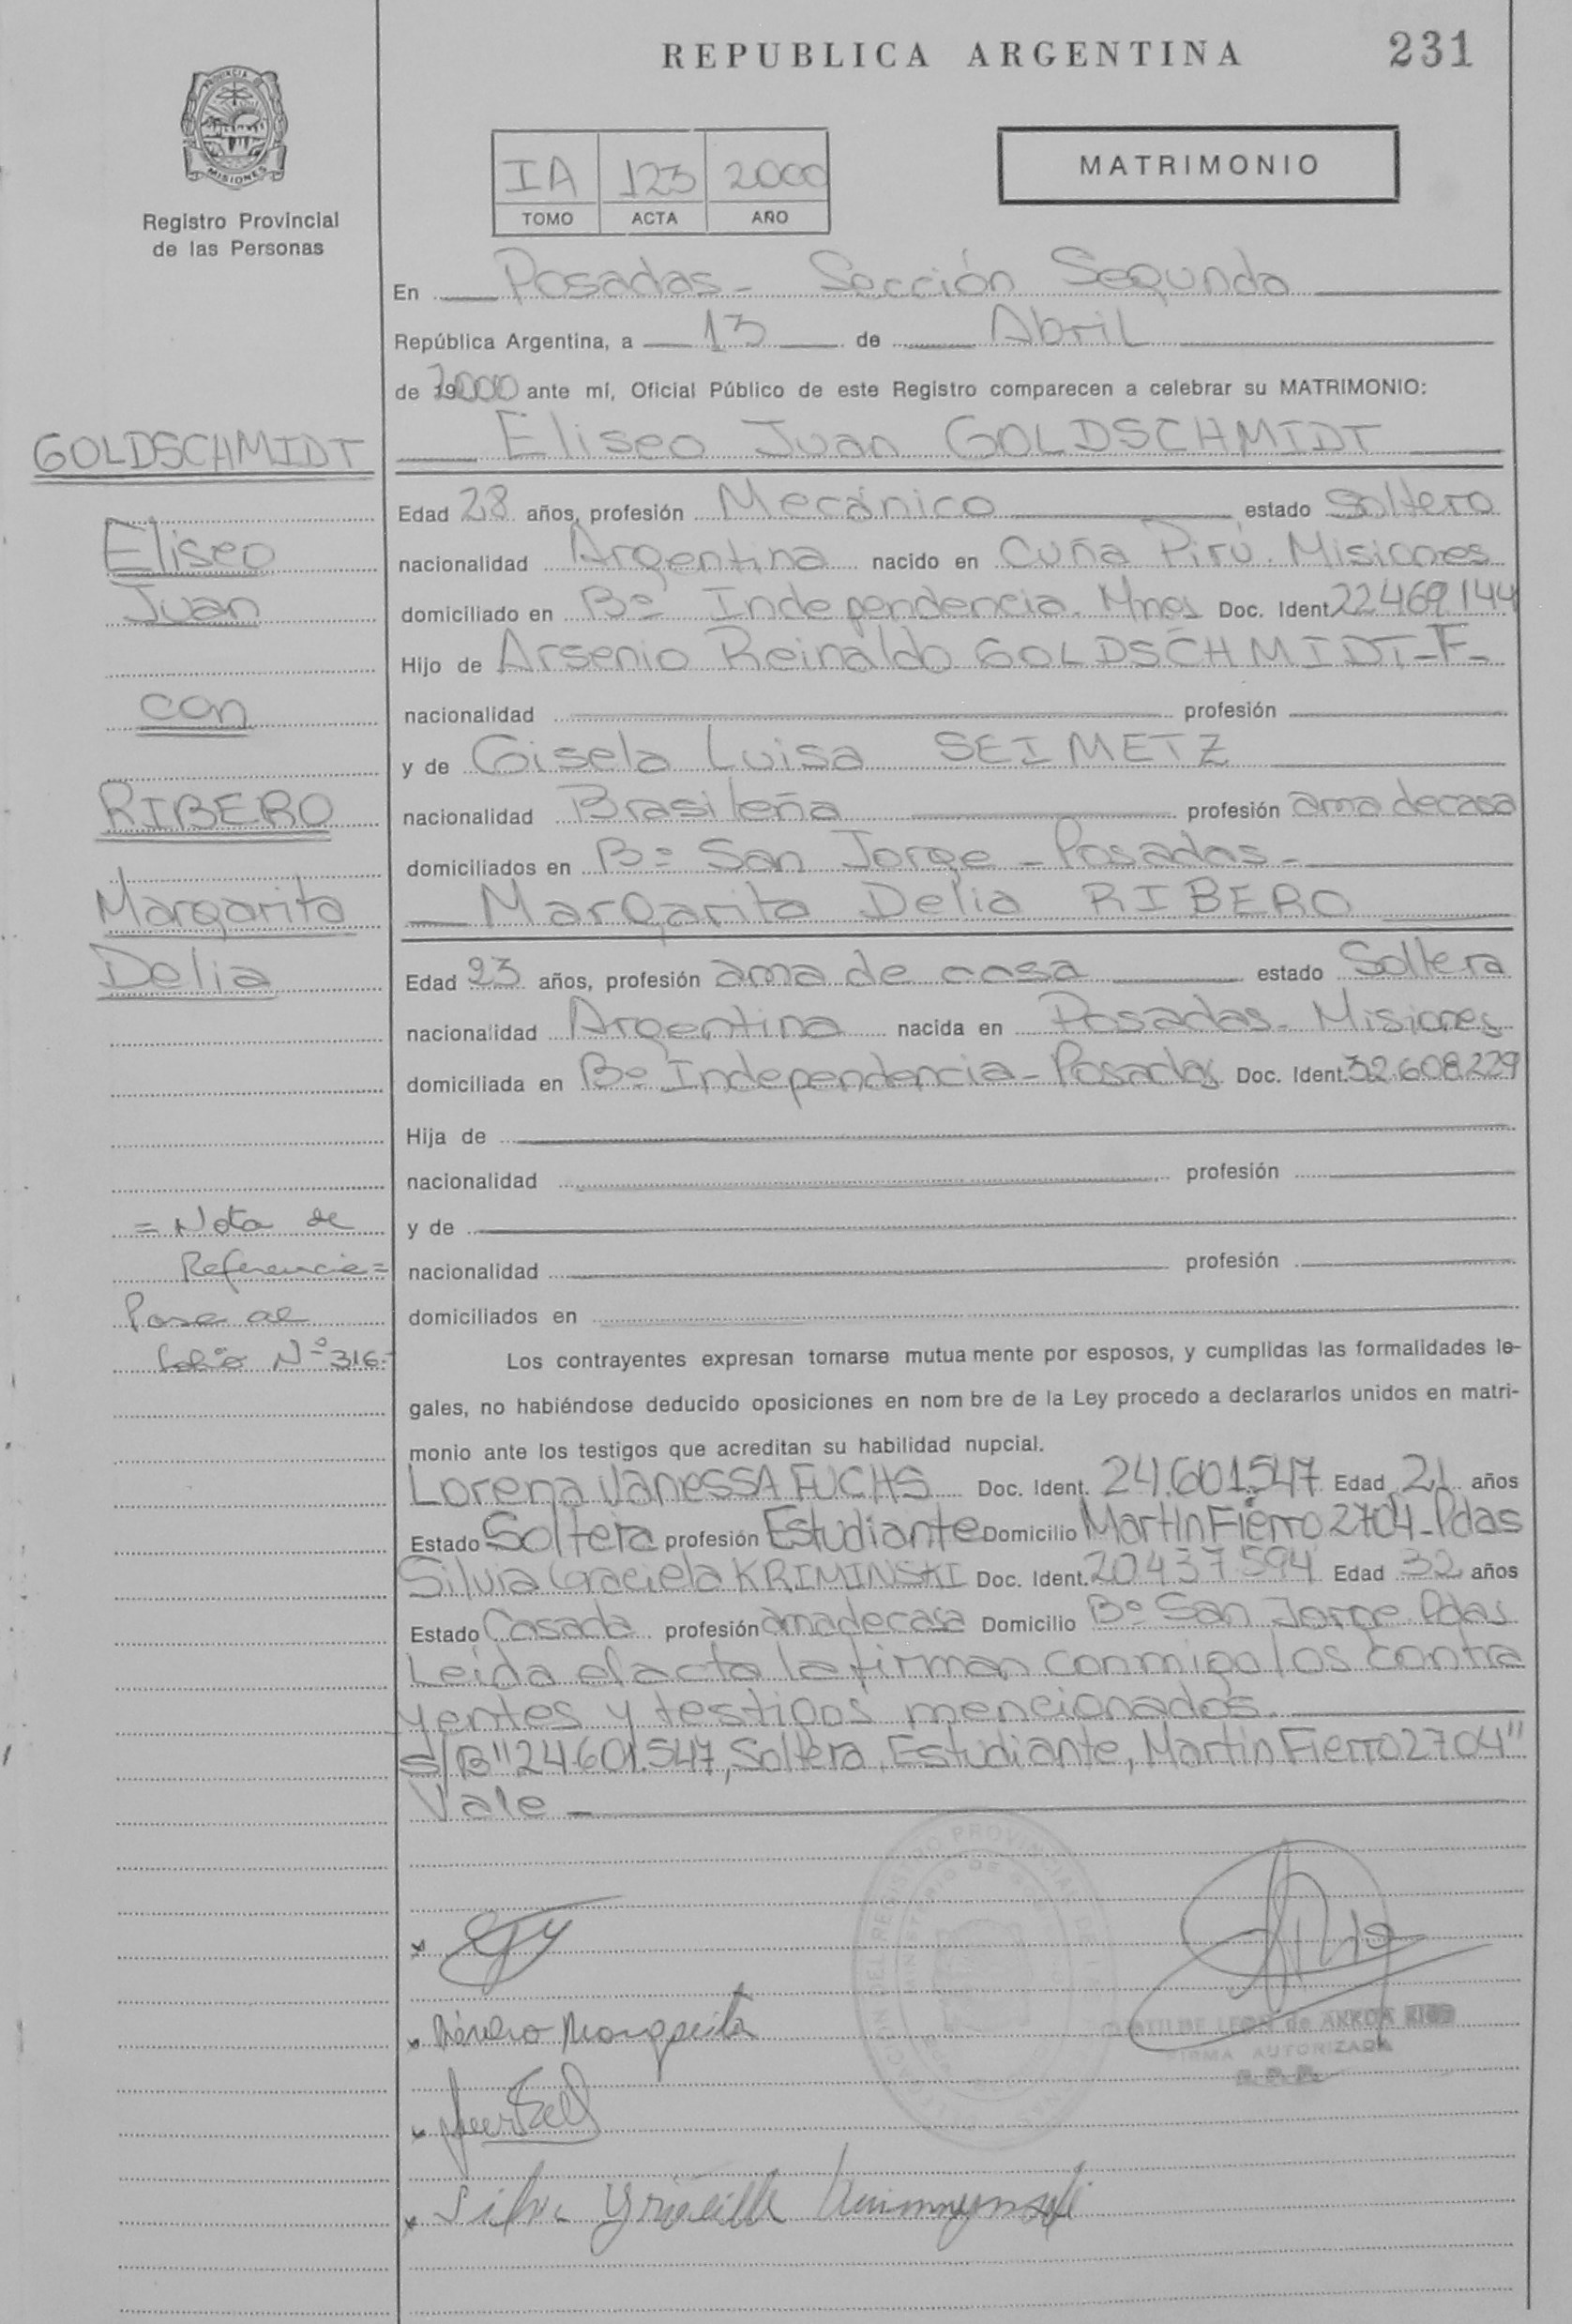 REPUBLICA ARGENTINA 231
PROVINCIA DE MISIONES
Registro Provincial
de las Personas
IA 123 2000
TOMO ACTA AÑO
MATRIMONIO
En Posadas - Sección Segunda
República Argentina, a 13 de Abril
de 2000 ante mí, Oficial Público de este Registro comparecen a celebrar su MATRIMONIO:
GOLDSCHMIDT
Eliseo
Juan
con
RIBERO
Margarita
Delia
= Nota de
Referencia =
Pase al
folio N° 316.-
Eliseo Juan GOLDSCHMIDT
Edad 28 años, profesión Mecánico estado Soltero
nacionalidad Argentina nacido en Cuña Pirú. Misiones
domiciliado en B° Independencia. Mnes Doc. Ident. 22469144
Hijo de Arsenio Reinaldo GOLDSCHMIDT-F-
nacionalidad profesión
y de Gisela Luisa SEIMETZ
nacionalidad Brasileña profesión ama de casa
domiciliados en B° San Jorge - Posadas -
Margarita Delia RIBERO
Edad 23 años, profesión ama de casa estado Soltera
nacionalidad Argentina nacida en Posadas - Misiones
domiciliada en B° Independencia - Posadas Doc. Ident. 32.608.229
Hija de
nacionalidad profesión
y de
nacionalidad profesión
domiciliados en
Los contrayentes expresan tomarse mutua mente por esposos, y cumplidas las formalidades le-
gales, no habiéndose deducido oposiciones en nom bre de la Ley procedo a declararlos unidos en matri-
monio ante los testigos que acreditan su habilidad nupcial.
Lorena Vanessa FUCHS Doc. Ident. 24.601.547 Edad 21 años
Estado Soltera profesión Estudiante Domicilio Martin Fierro 2704 - Pdas
Silvia Graciela KRIMINSKI Doc. Ident. 20437594 Edad 32 años
Estado Casada profesión ama de casa Domicilio B° San Jorge Pdas
Leída el acta la firman conmigo los contra
yentes y testigos mencionados.
S/B "24.601.547, Soltera, Estudiante, Martin Fierro 2704"
Vale -
Ribero Margarita
LEON de ARROA
FIRMA AUTORIZADA
R. P. P.